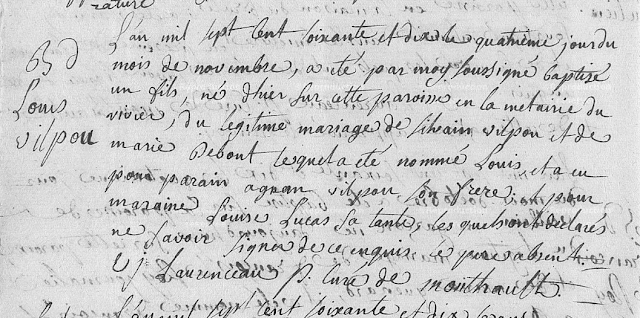 L'an mil sept cent soixante et dix le quatrième jour du
mois de novembre, a été par moy soussigné baptizé
un fils, né d'hier sur cette paroisse en la metairie du
vivier, du legitime mariage de silvain vilpou et de
marie Debout lequel a été nommé Louis, et a eu
pour parain agnan vilpou son frere et pour
maraine Louise Lucas sa tante, les quels ont declarés
ne savoir signer de ce enquis, le pere absent.
Laurenceau P. curé de monthault.
B d
Louis
vilpou
L'an mil sept cent soixante et dix